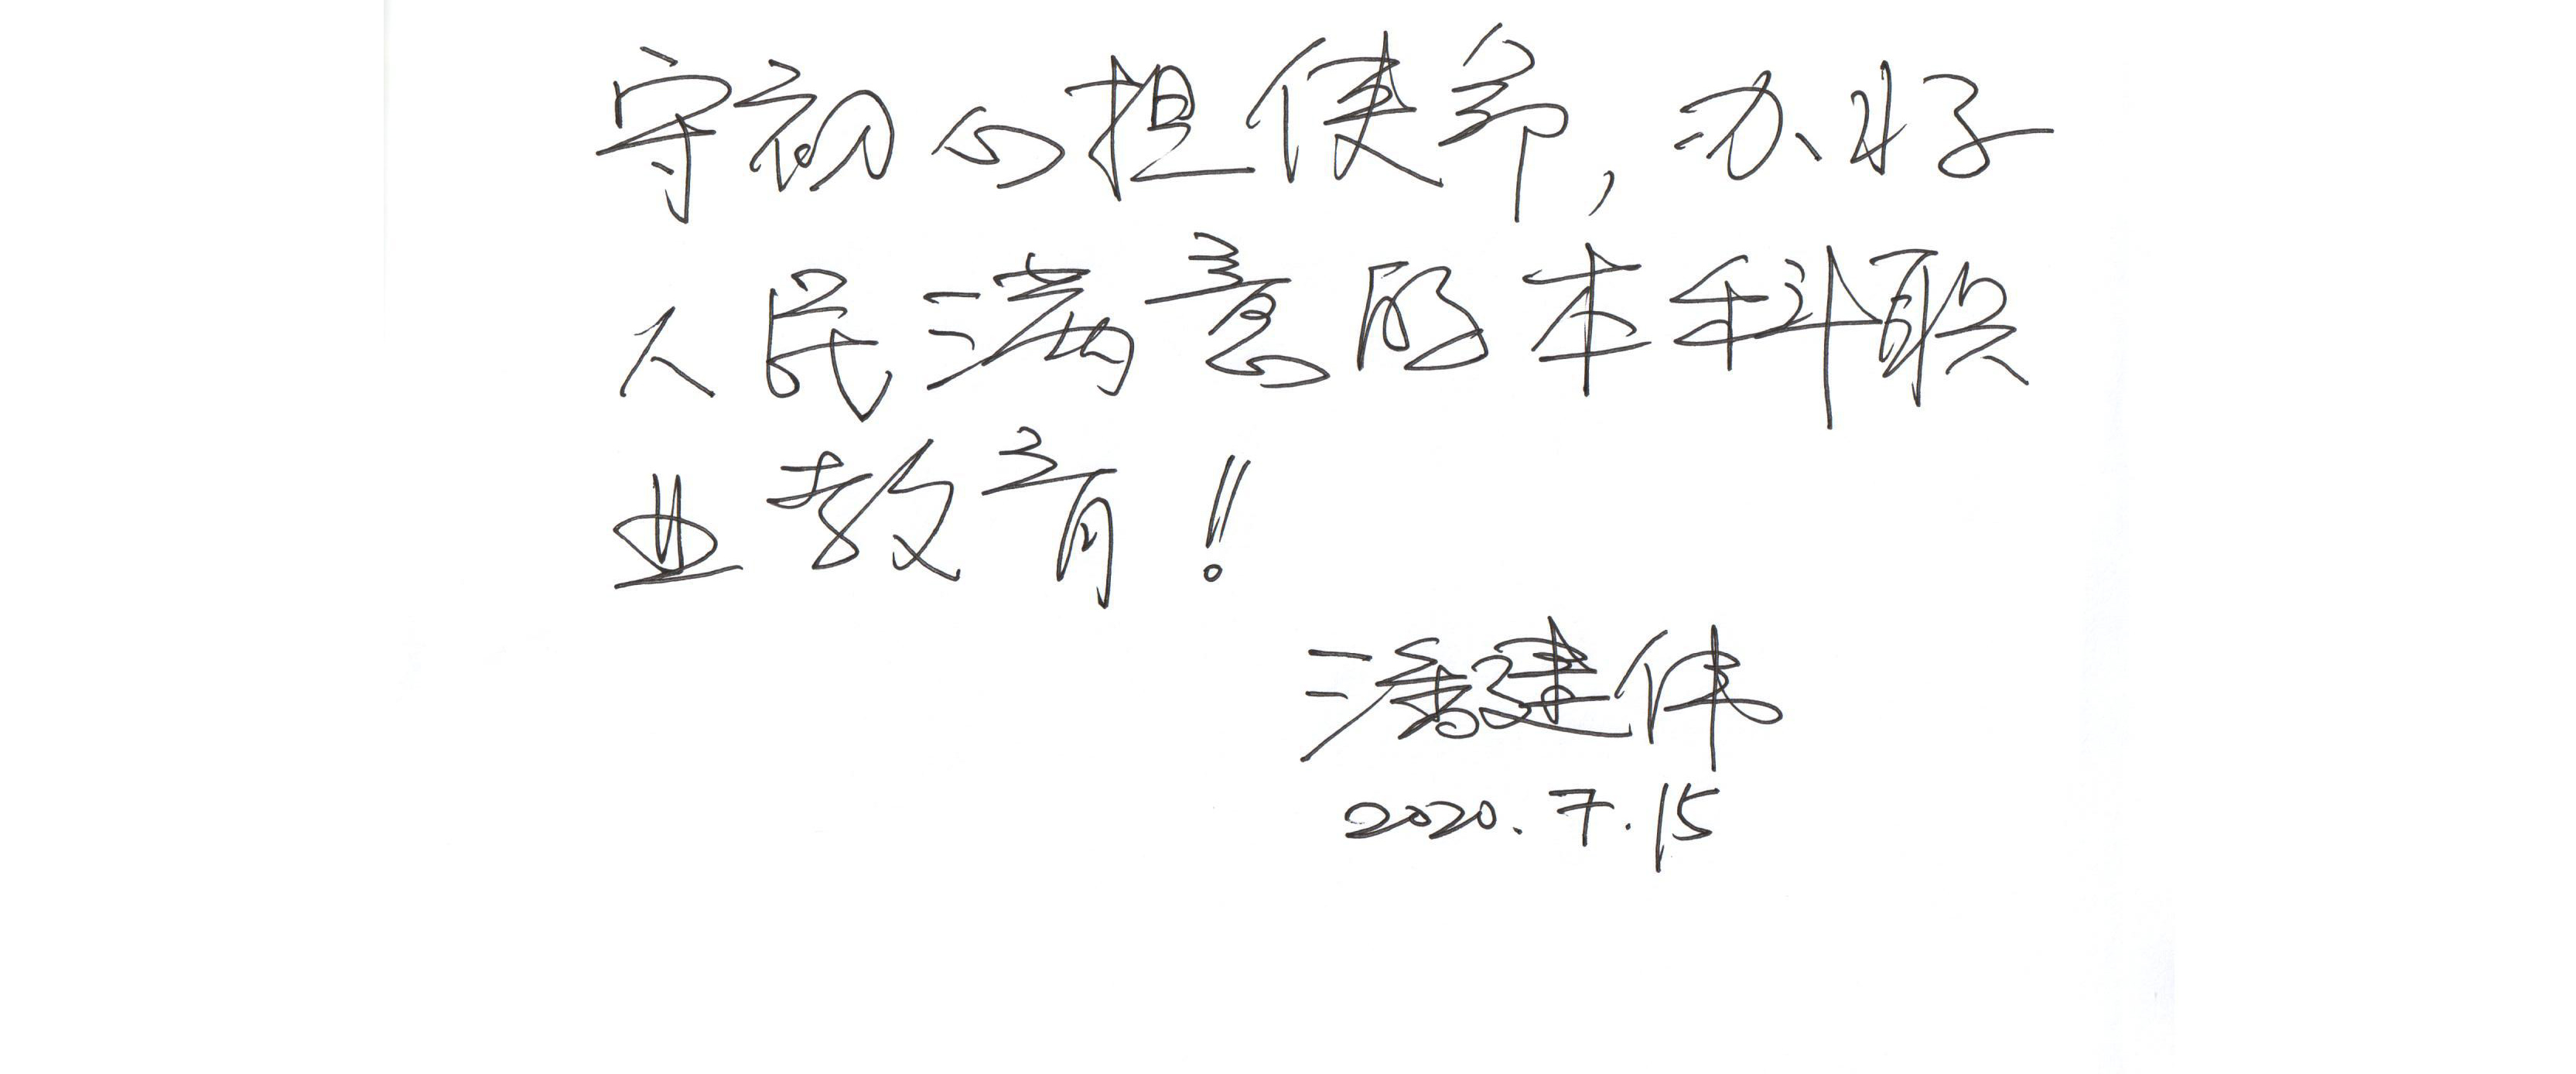 守初心担使命，办好
人民满意的本科职
业教育！
潘建伟
2020.7.15